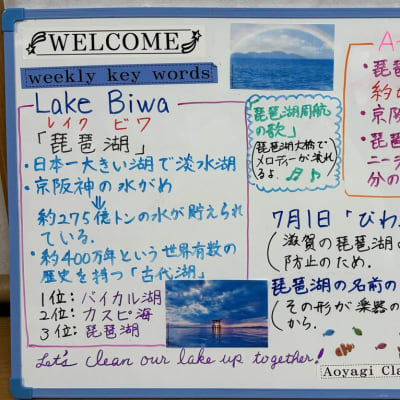 WELCOME
weekly key words
Lake Biwa
レイク ビワ
「琵琶湖」
・日本一大きい湖で淡水湖
・京阪神の水がめ
⇓
約275億トンの水が貯えられ
ている.
・約400万年という世界有数の
歴史を持つ「古代湖」
1位:バイカル湖
2位:カスピ海
3位:琵琶湖
Let's clean our lake up together!
琵琶湖周航
の歌」
(琵琶湖大橋で
メロディーが流れ
るよ.
・琵琶
約
・京阪
・琵琶
ニー
分の
7月1日「びわ
(滋賀の琵琶湖の
防止のため.
琵琶湖の名前の
(その形が楽器の
から.
Aoyagi Cla